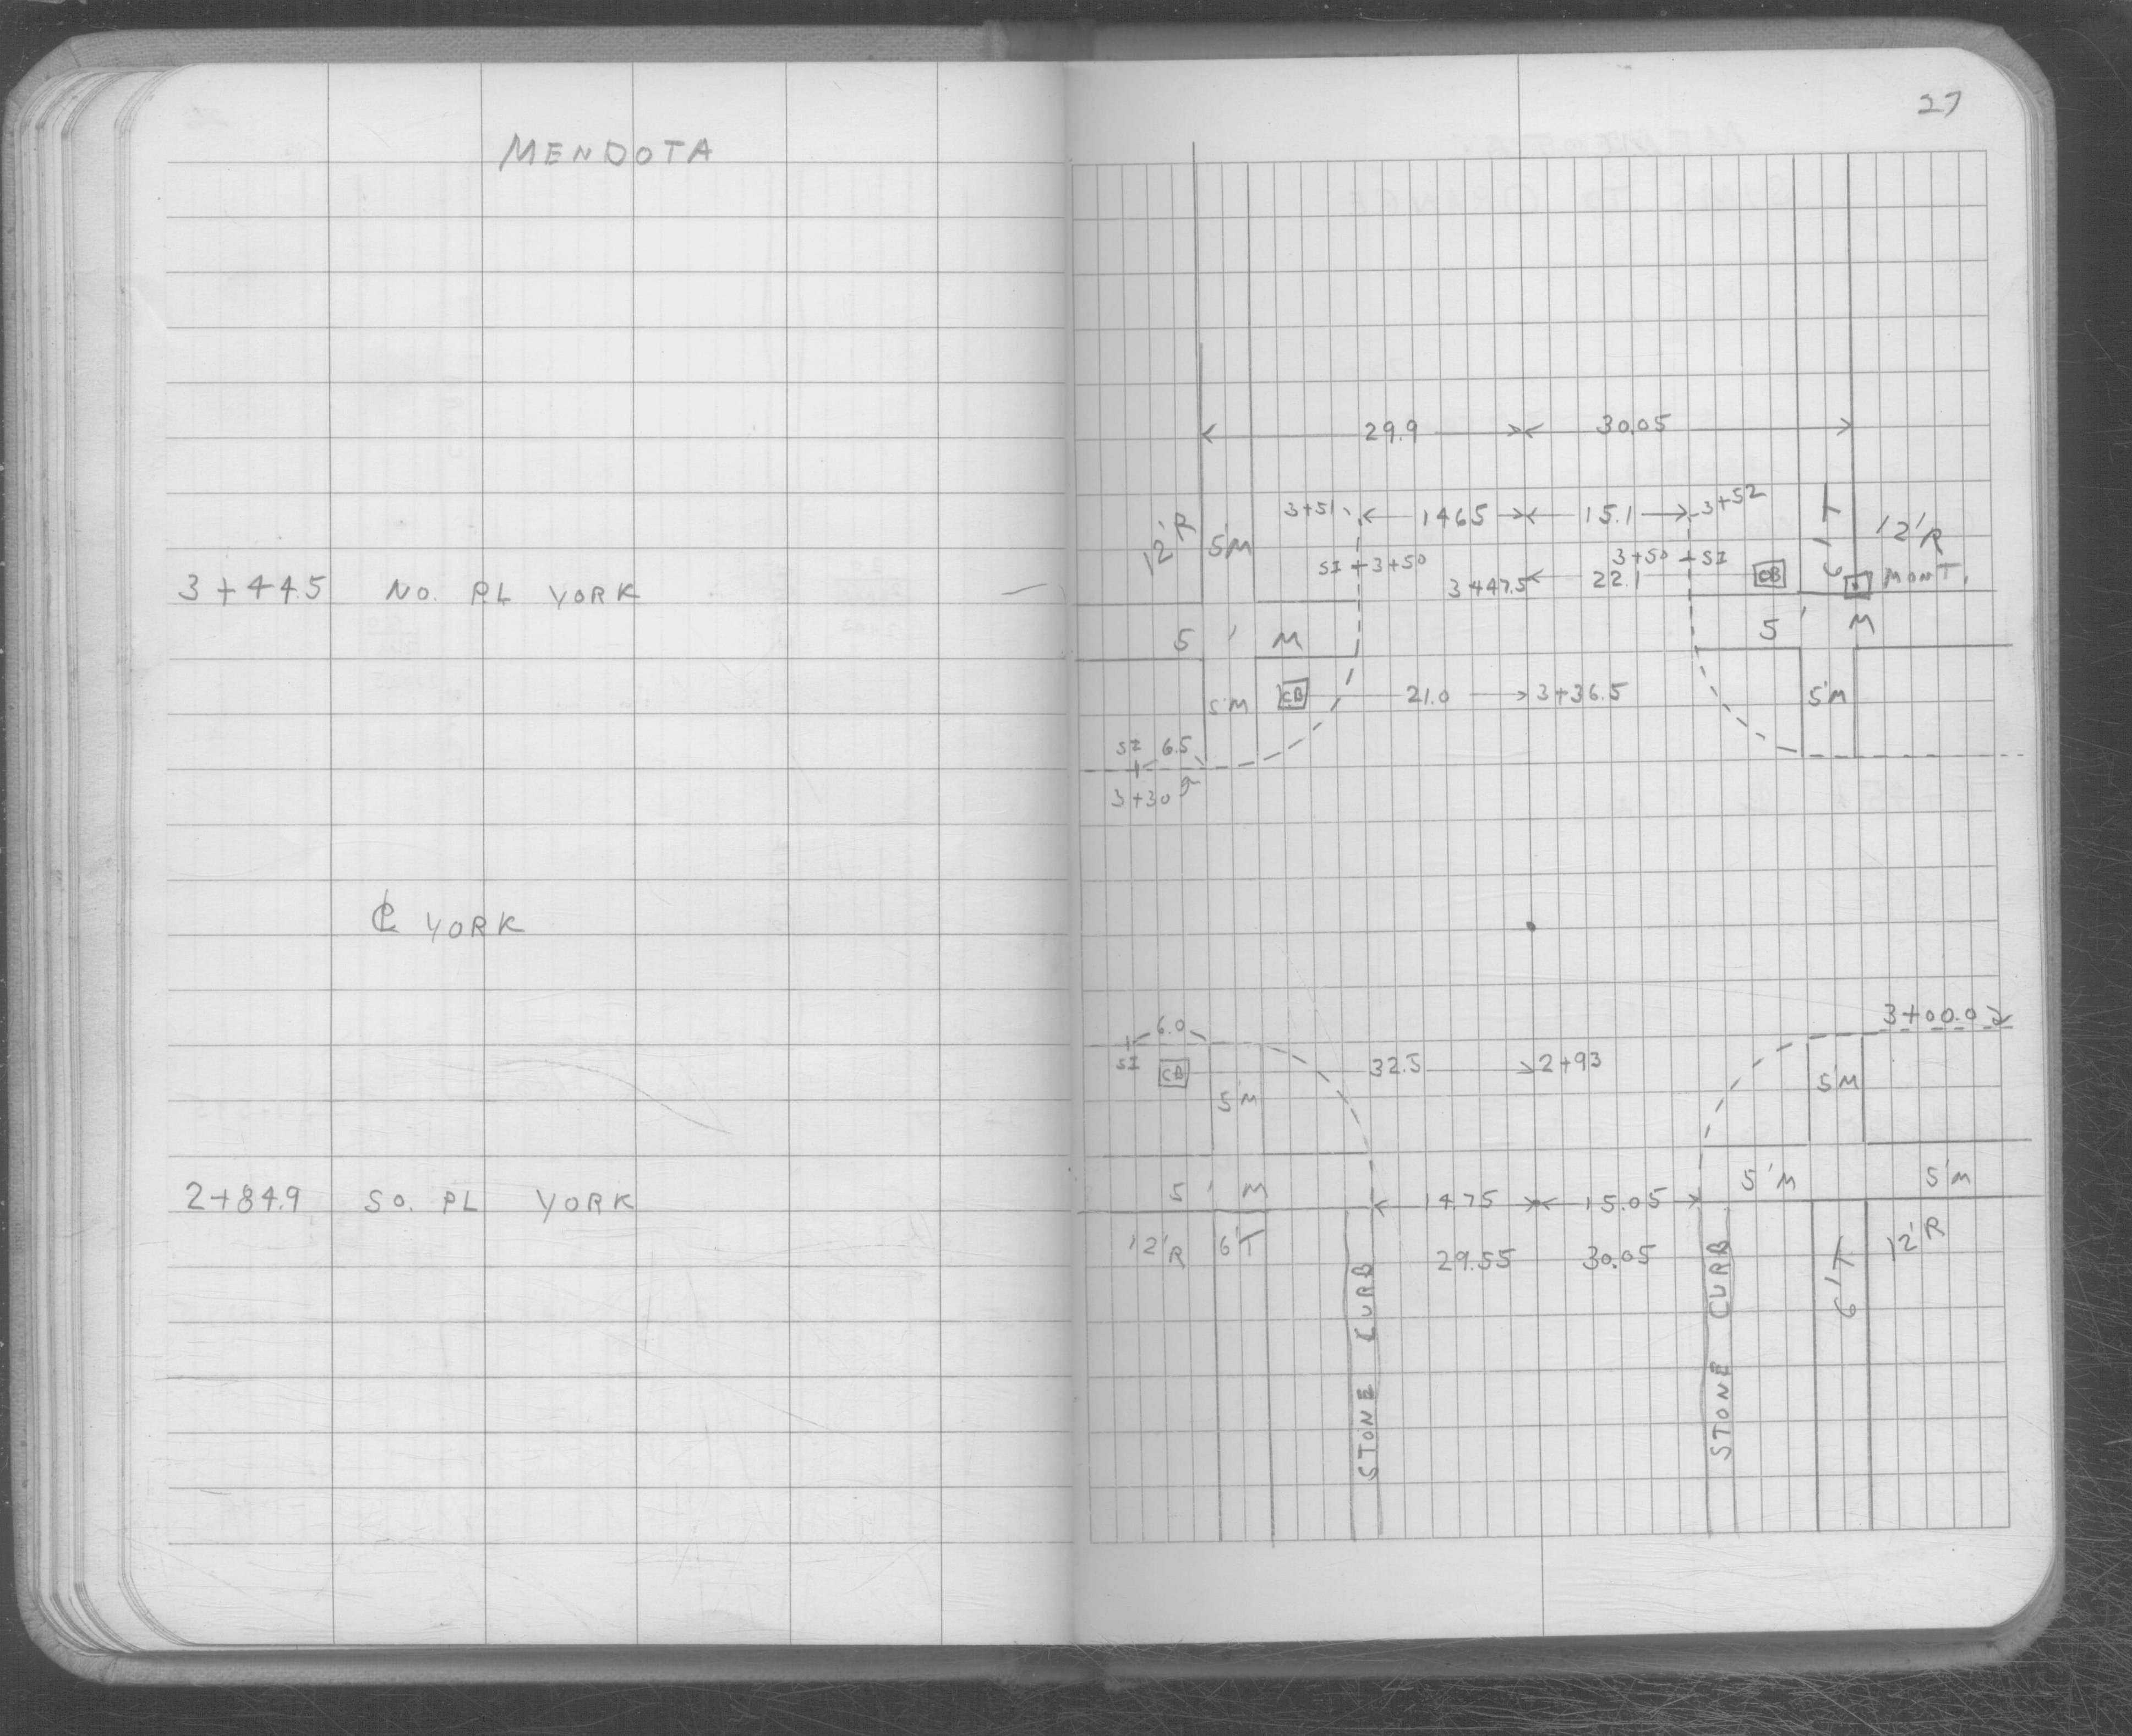 27
MENDOTA
29.9 30.05
3+51 14.65 15.1 3+52
12'R 5'M 6'T 12'R
SI 3+50 3+50 SI
3+44.5 NO. PL YORK 3+47.5 22.1 CB MONT.
5'M 5'M
5'M CB 21.0 3+36.5 5'M
SI 6.5
3+30
℄ YORK
6.0 3+00.0
SI CB 32.5 2+93
5'M 5'M
2+84.9 SO. PL YORK 5'M 14.75 15.05 5'M 5'M
12'R 6'T 29.55 30.05 6'T 12'R
STONE CURB STONE CURB